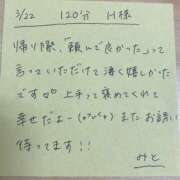 3/22 120分 H様
帰り際、「頼んで良かった」って
言っていただけて凄く嬉しかった
です♡ 上手って褒めてくれて
幸せだよー(*>∀<*) またお誘い
待ってます!!
みと